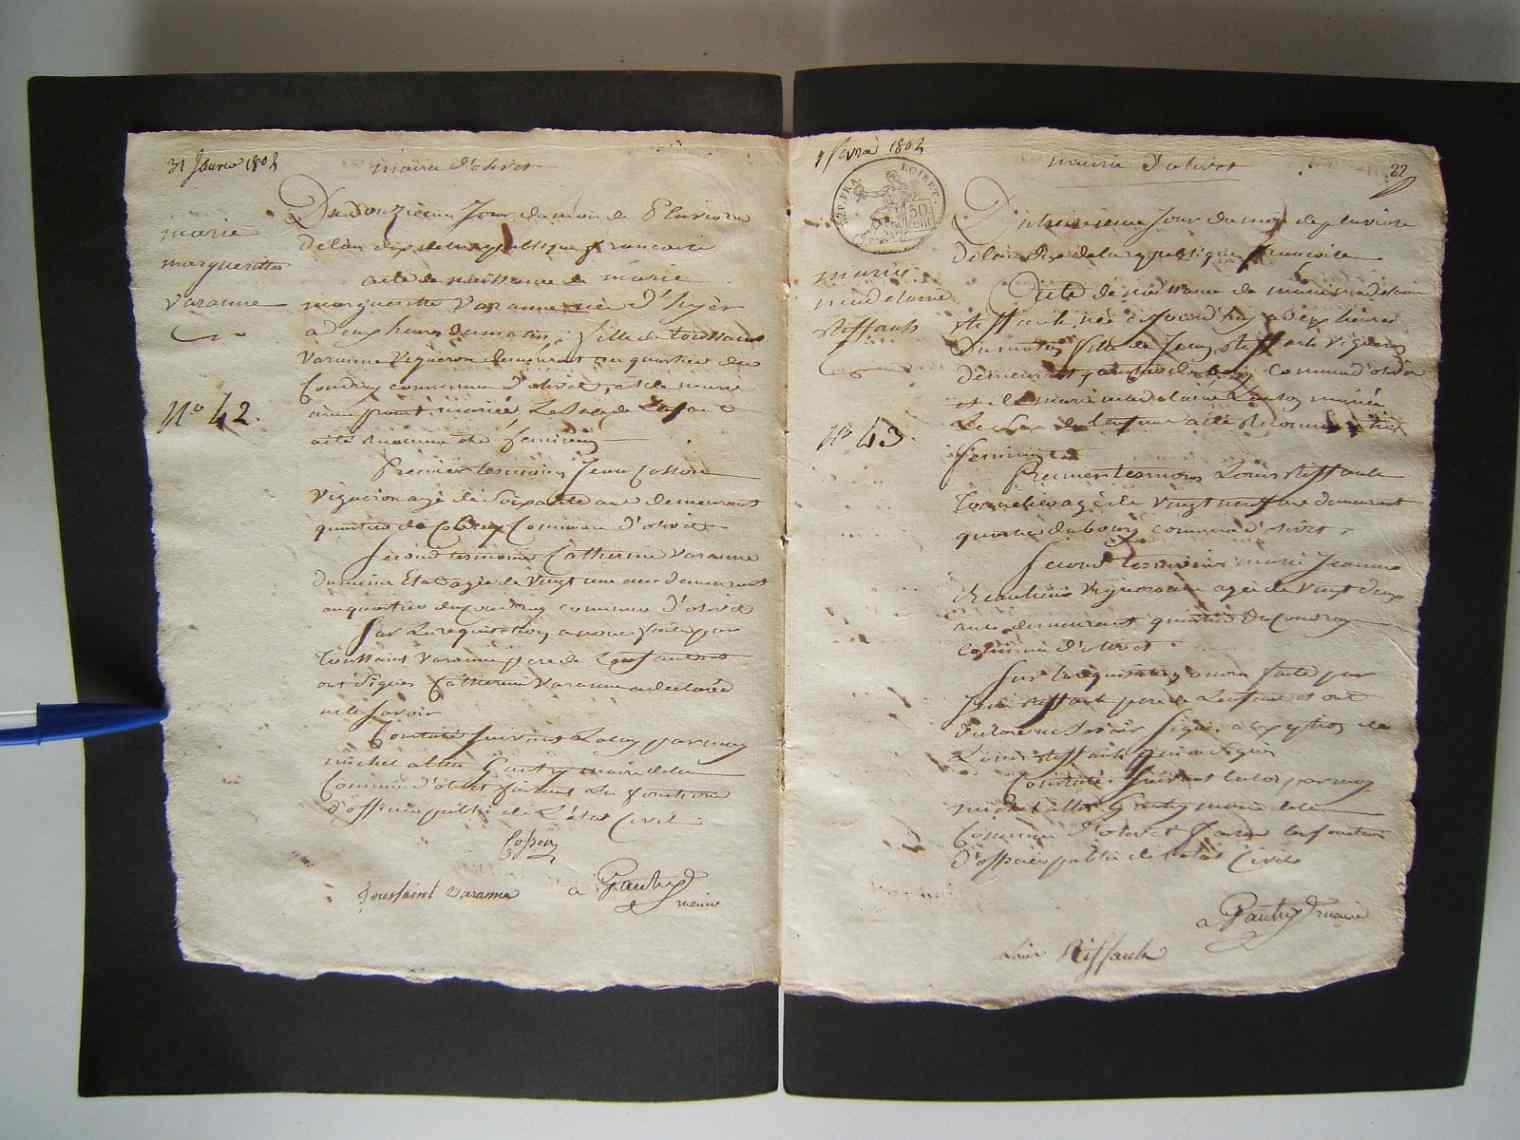 31 Janvier 1802
mairie d'olivet
Du Douzieme Jour du mois de Pluviose
marie
margueritte
varanne
de lan dix de la republique francaise
acte de naissance de marie
margueritte varanne née d'hyer
a deux heures du matin, fille de toussaint
varanne vigneron demeurant au quartier du
Coudray commune d'olivet, et de
No 42.
mariée Le Sexe de Lenfant a
été reconnu être feminin
Premier temoin, Jean Cosson
vigneron agé de Soixante ans demeurant
quartier de Commune d'olivet
Second temoin Catherine varanne
du meme Etat agée de vingt une ans demeurant
au quartier du coudray commune d'olivet
Sur La requisition a nous faite par
toussaint varanne pere de Lenfant et
ont Signés Catherine varanne a declarée
ne le Savoir
Constaté Suivant La Loy par moy
michel alban Gautry maire de la
Commune d'olivet faisant les fonctions
d'officier public de L'état Civil
Cosson
toussaint varanne
a Gautry
maire
1 fevrier 1802
REP. FRA. LOIRET.
50
mairie d'olivet
22
Du treizieme Jour du mois de pluviose
de lan dix de la republique francaise
marie
madelaine
Riffault
Acte de naissance de marie madelaine
Riffault née d'aujourd'huy a dix heures
du matin fille de Jean Riffault vigneron
demeurant quartier du bourg Commune d'olivet
et de marie madelaine mariée
No 43.
Le Sexe de Lenfant a été reconnu être
feminin
Premier temoin Louis Riffault
Tonnelier agé de vingt neuf ans demeurant
quartier du bourg commune d'olivet
Second temoin marie Jeanne
vigneronne agée de vingt deux
ans demeurant quartier du Coudray
Commune d'olivet
Sur la requisition a nous faite par
Jean Riffault pere de Lenfant et ont
declaré ne Savoir Signer a exception de
Louis Riffault qui a Signé
Constaté Suivant la loy par moy
michel alban Gautry maire de la
Commune d'olivet faisant les fonctions
d'officier public de l'etat Civil
a Gautry maire
Louis Riffault